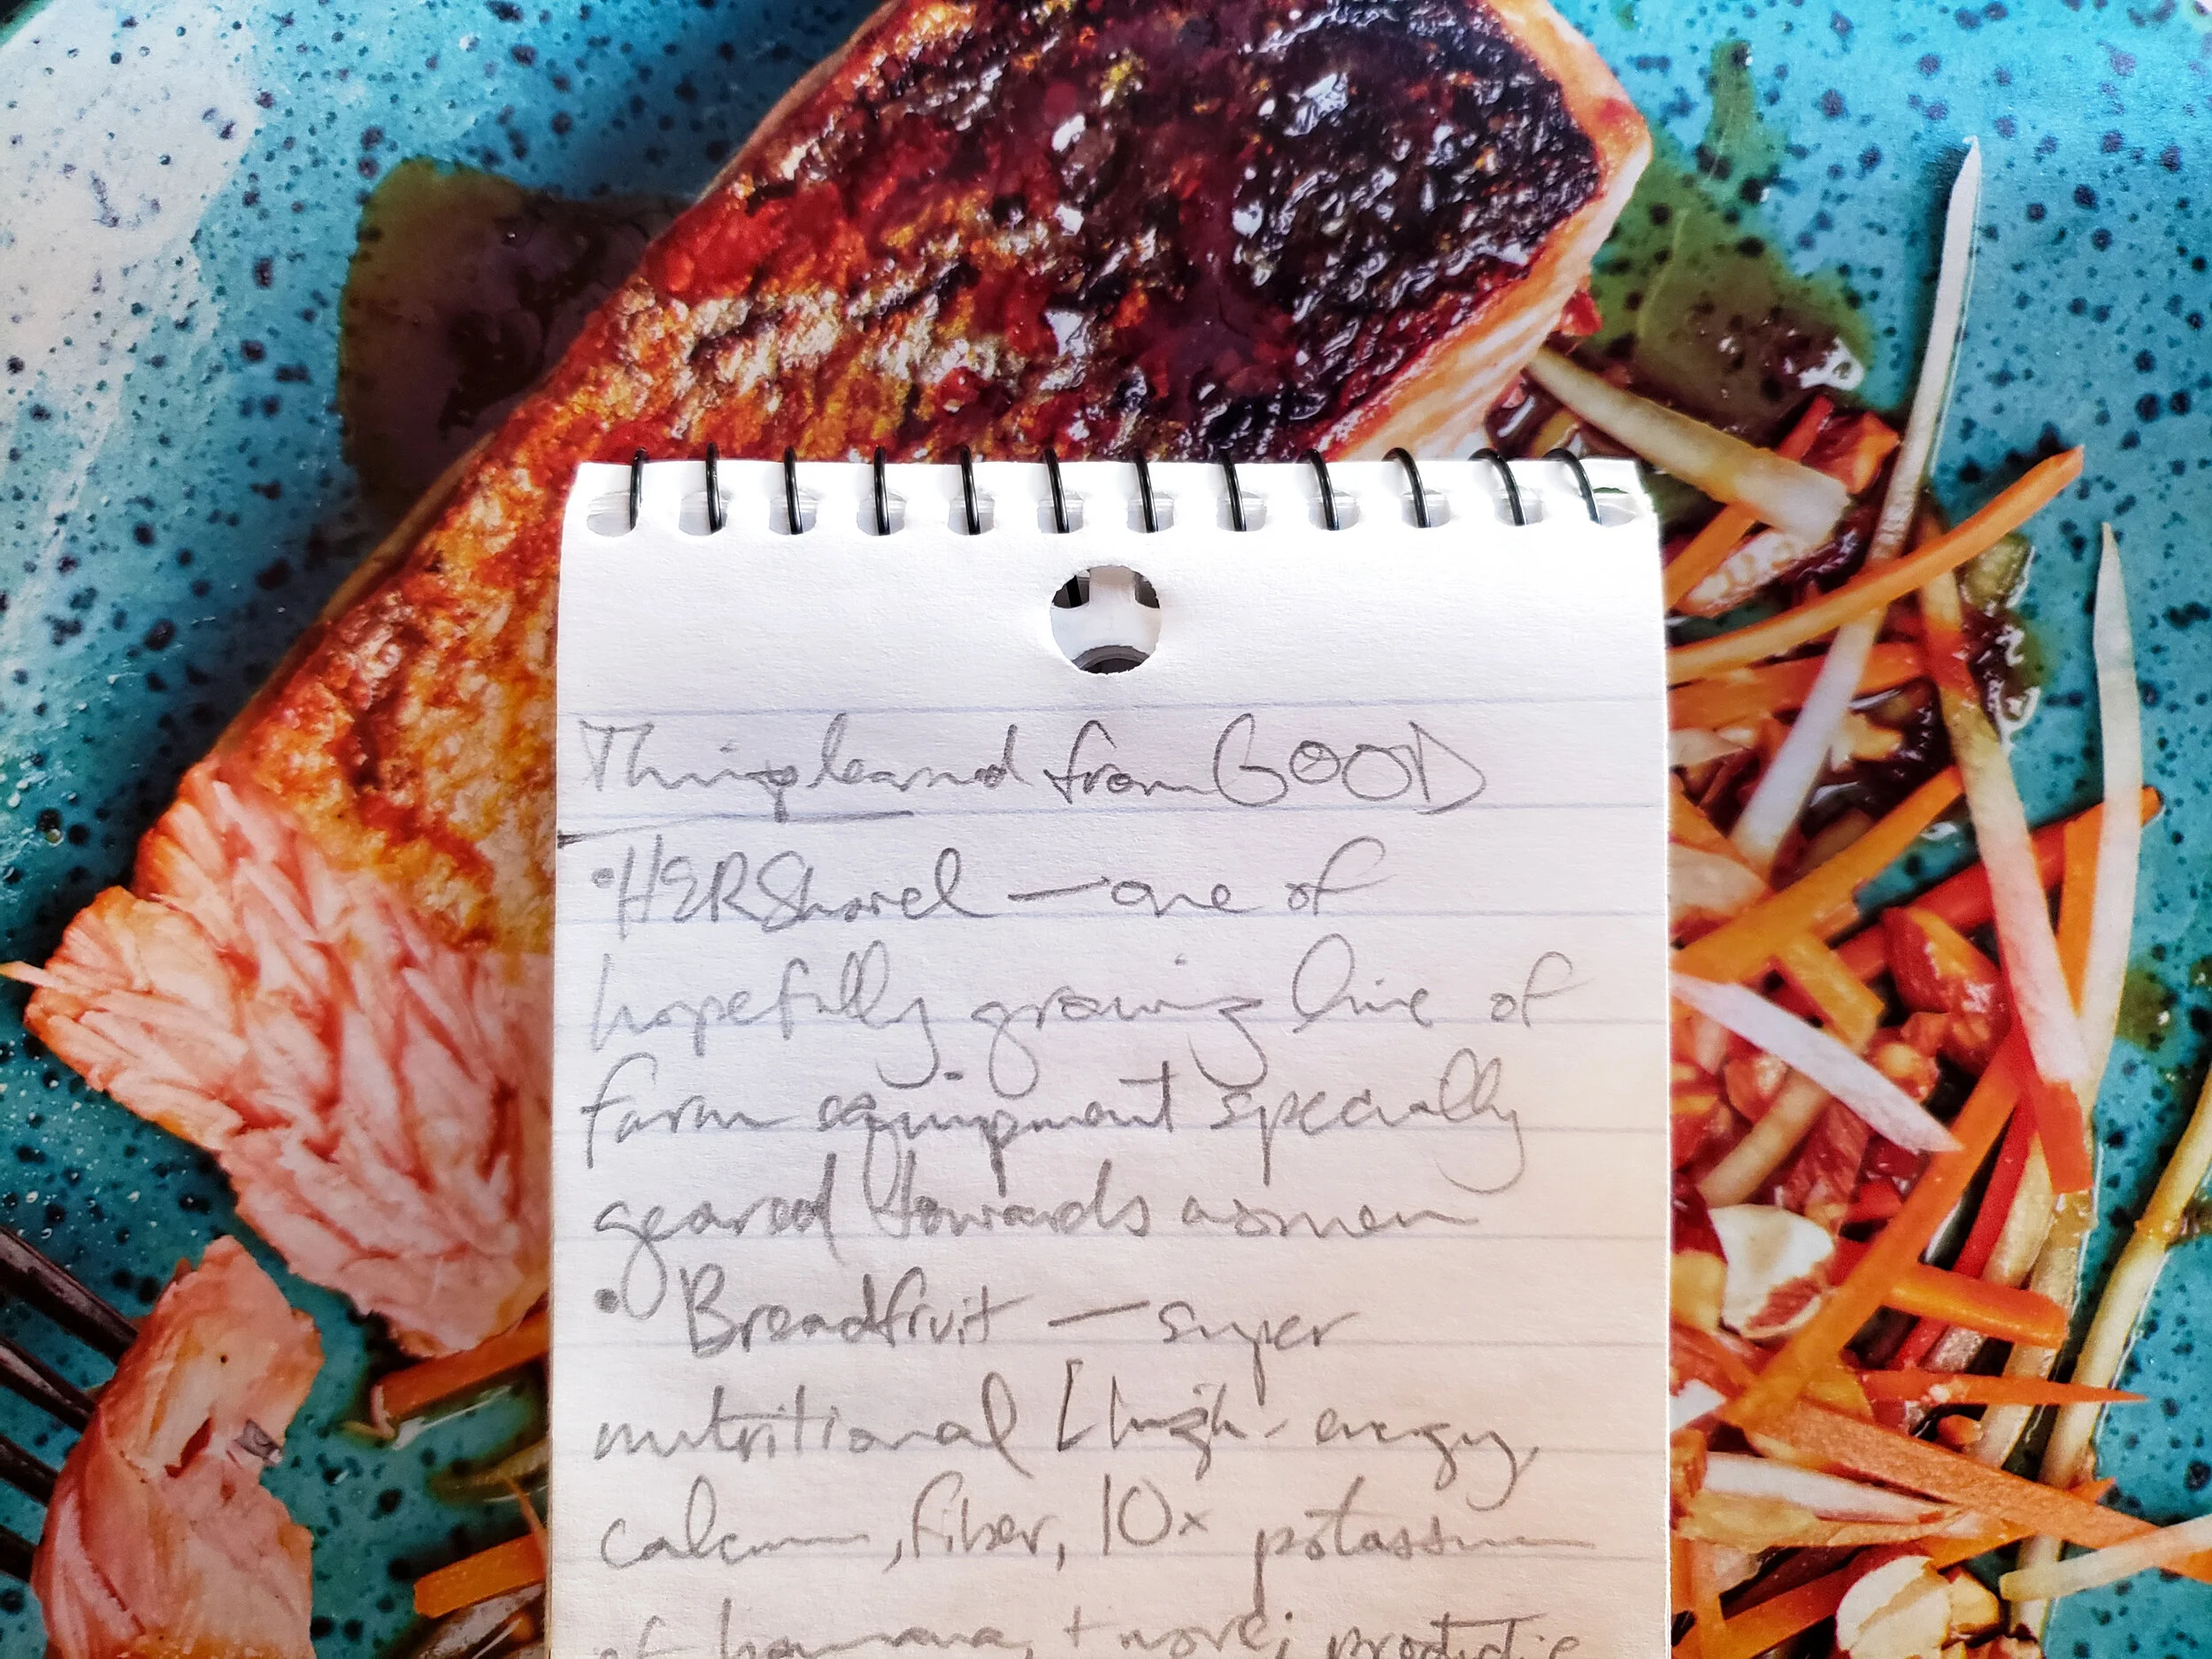 Things learned from GOOD
• HERShovel — one of
hopefully growing line of
farm equipment specially
geared towards women
• Breadfruit — super
nutritional [high-energy,
calcium, fiber, 10x potassium
of banana, + more; productive